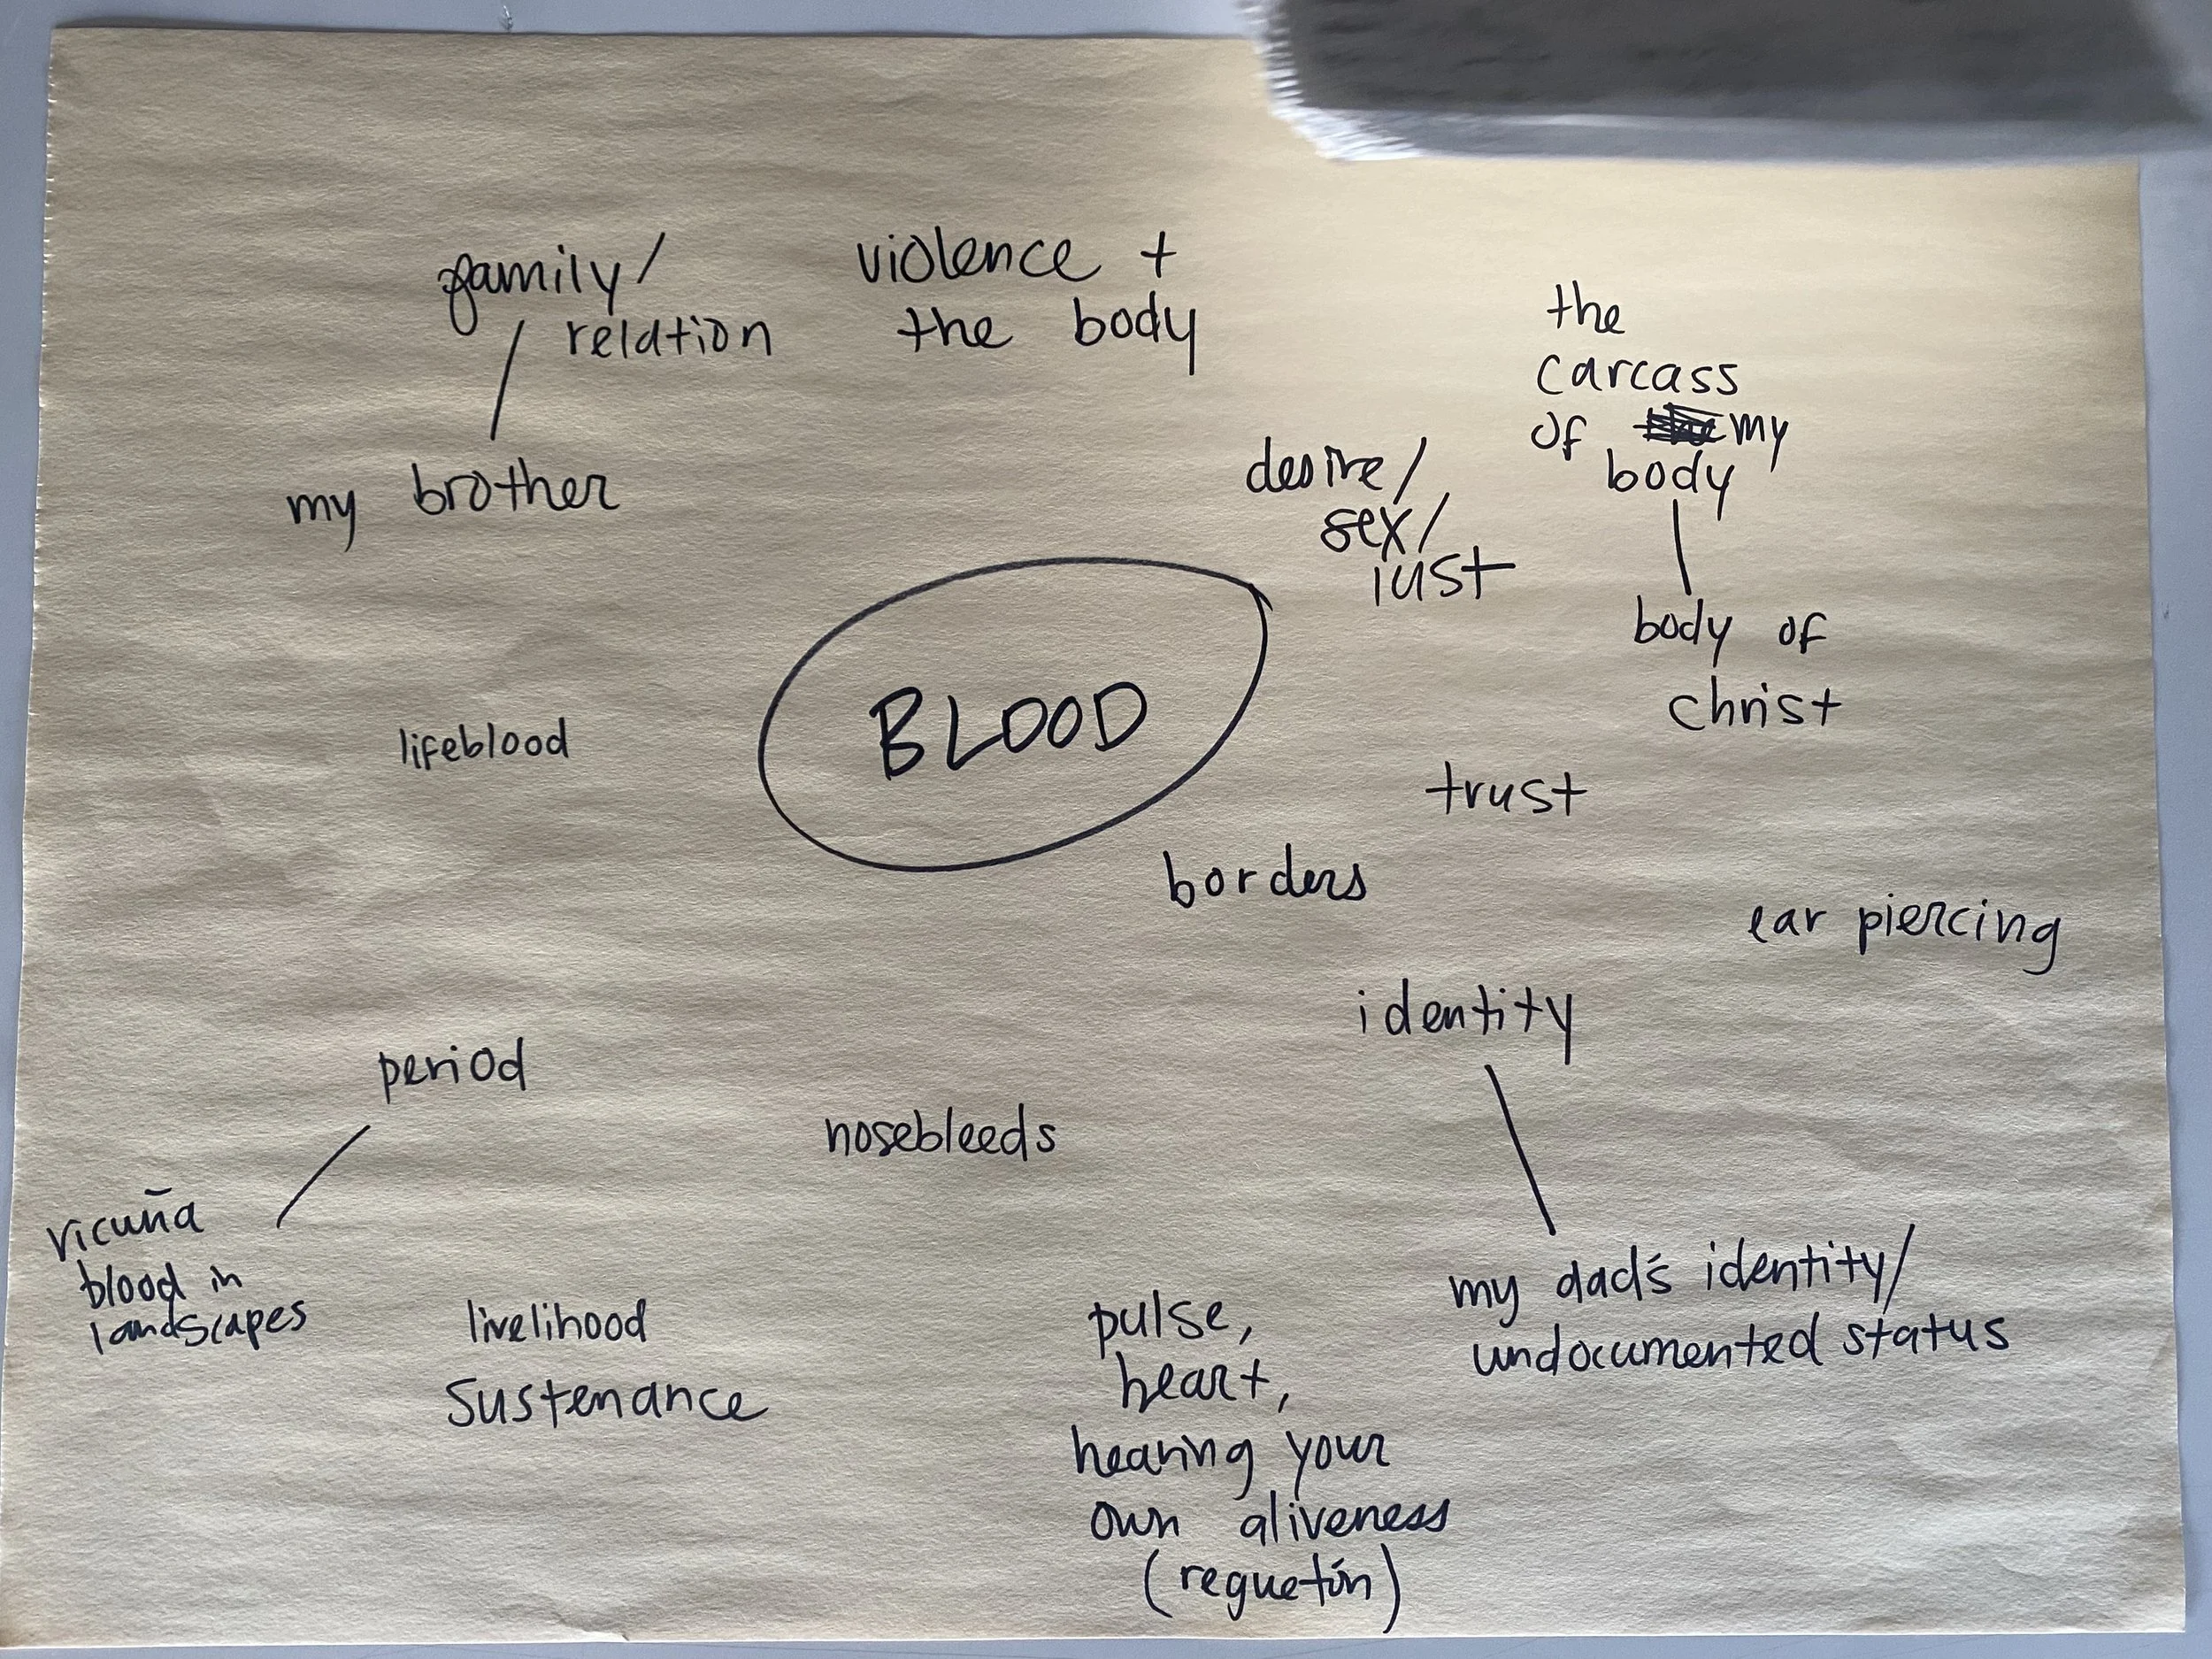 family/
relation
my brother
violence +
the body
the
carcass
of my
body
body of
christ
desire/
sex/
lust
BLOOD
lifeblood
trust
borders
ear piercing
identity
my dad's identity/
undocumented status
period
vicuña
blood in
landscapes
nosebleeds
livelihood
sustenance
pulse,
heart,
hearing your
own aliveness
(reguetón)